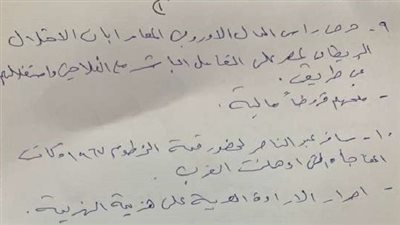 ٩- حرص رأس المال الاوروبى المغامر ابان الاحتلال
البريطانى لمصر على التعامل المباشر مع الفلاحين واستغلالهم
عن طريق.
- منحهم قروضاً مالية.
١٠- سافر عبد الناصر لحضور قمة الخرطوم ١٩٦٧ وكانت
المفاجأة التى اذهلت الغرب.
- اصرار الارادة العربية على هزيمة الهزيمة.